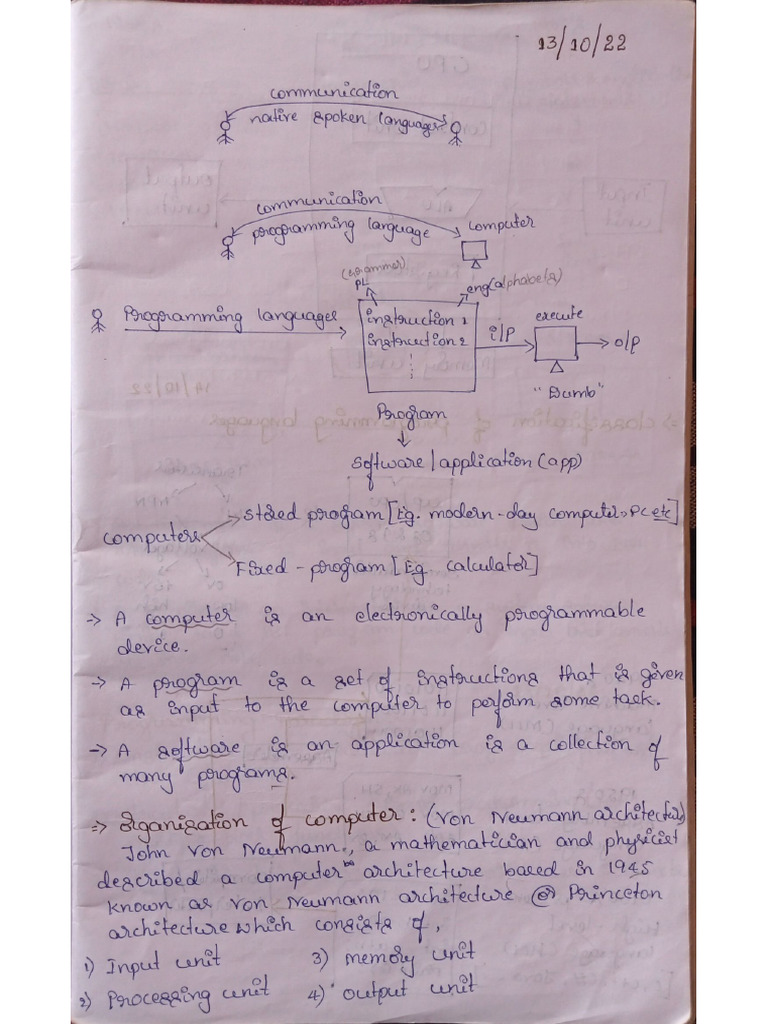 13/10/22
communication
native spoken languages
communication
programming language
computer
(grammer)
PL
eng(alphabets)
Programming languages
instruction 1
instruction 2
i/P
execute
o/p
"Dumb"
Program
software/application (app)
computers
stored program [Eg. modern-day computers, PC etc]
Fixed-program [Eg. calculator]
→ A computer is an electronically programmable
device.
→ A program is a set of instructions that is given
as input to the computer to perform some task.
→ A software is an application is a collection of
many programs.
⇒ Organization of computer: (Von Neumann architecture)
John Von Neumann, a mathematician and physicist
described a computer architecture based in 1945
known as Von Neumann architecture or Princeton
architecture which consists of,
1) Input unit 3) memory unit
2) Processing unit 4) output unit